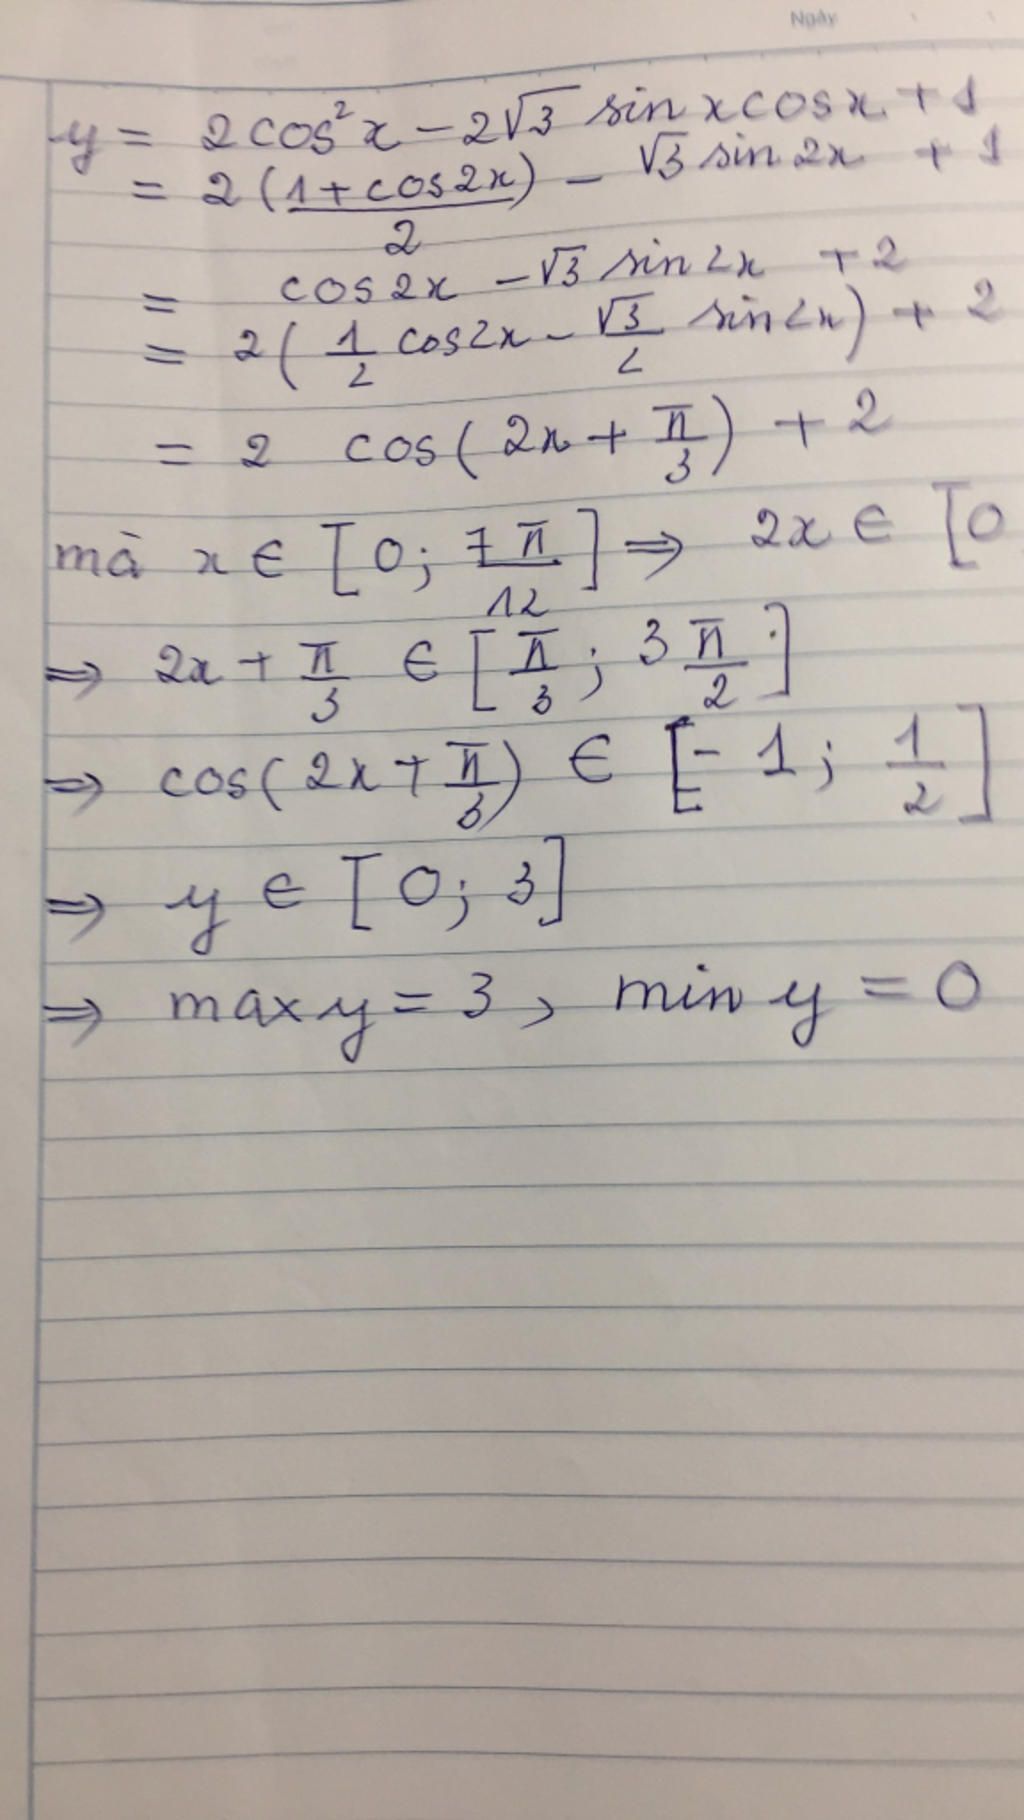 Ngày
y = 2cos²x - 2√3 sinxcosx + 1
= 2(1+cos2x)/2 - √3 sin2x + 1
= cos2x - √3 sin2x + 2
= 2(1/2 cos2x - √3/2 sin2x) + 2
= 2 cos(2x + π/3) + 2
mà x ∈ [0; 7π/12] ⇒ 2x ∈ [0
⇒ 2x + π/3 ∈ [π/3; 3π/2]
⇒ cos(2x + π/3) ∈ [-1; 1/2]
⇒ y ∈ [0; 3]
⇒ max y = 3, min y = 0